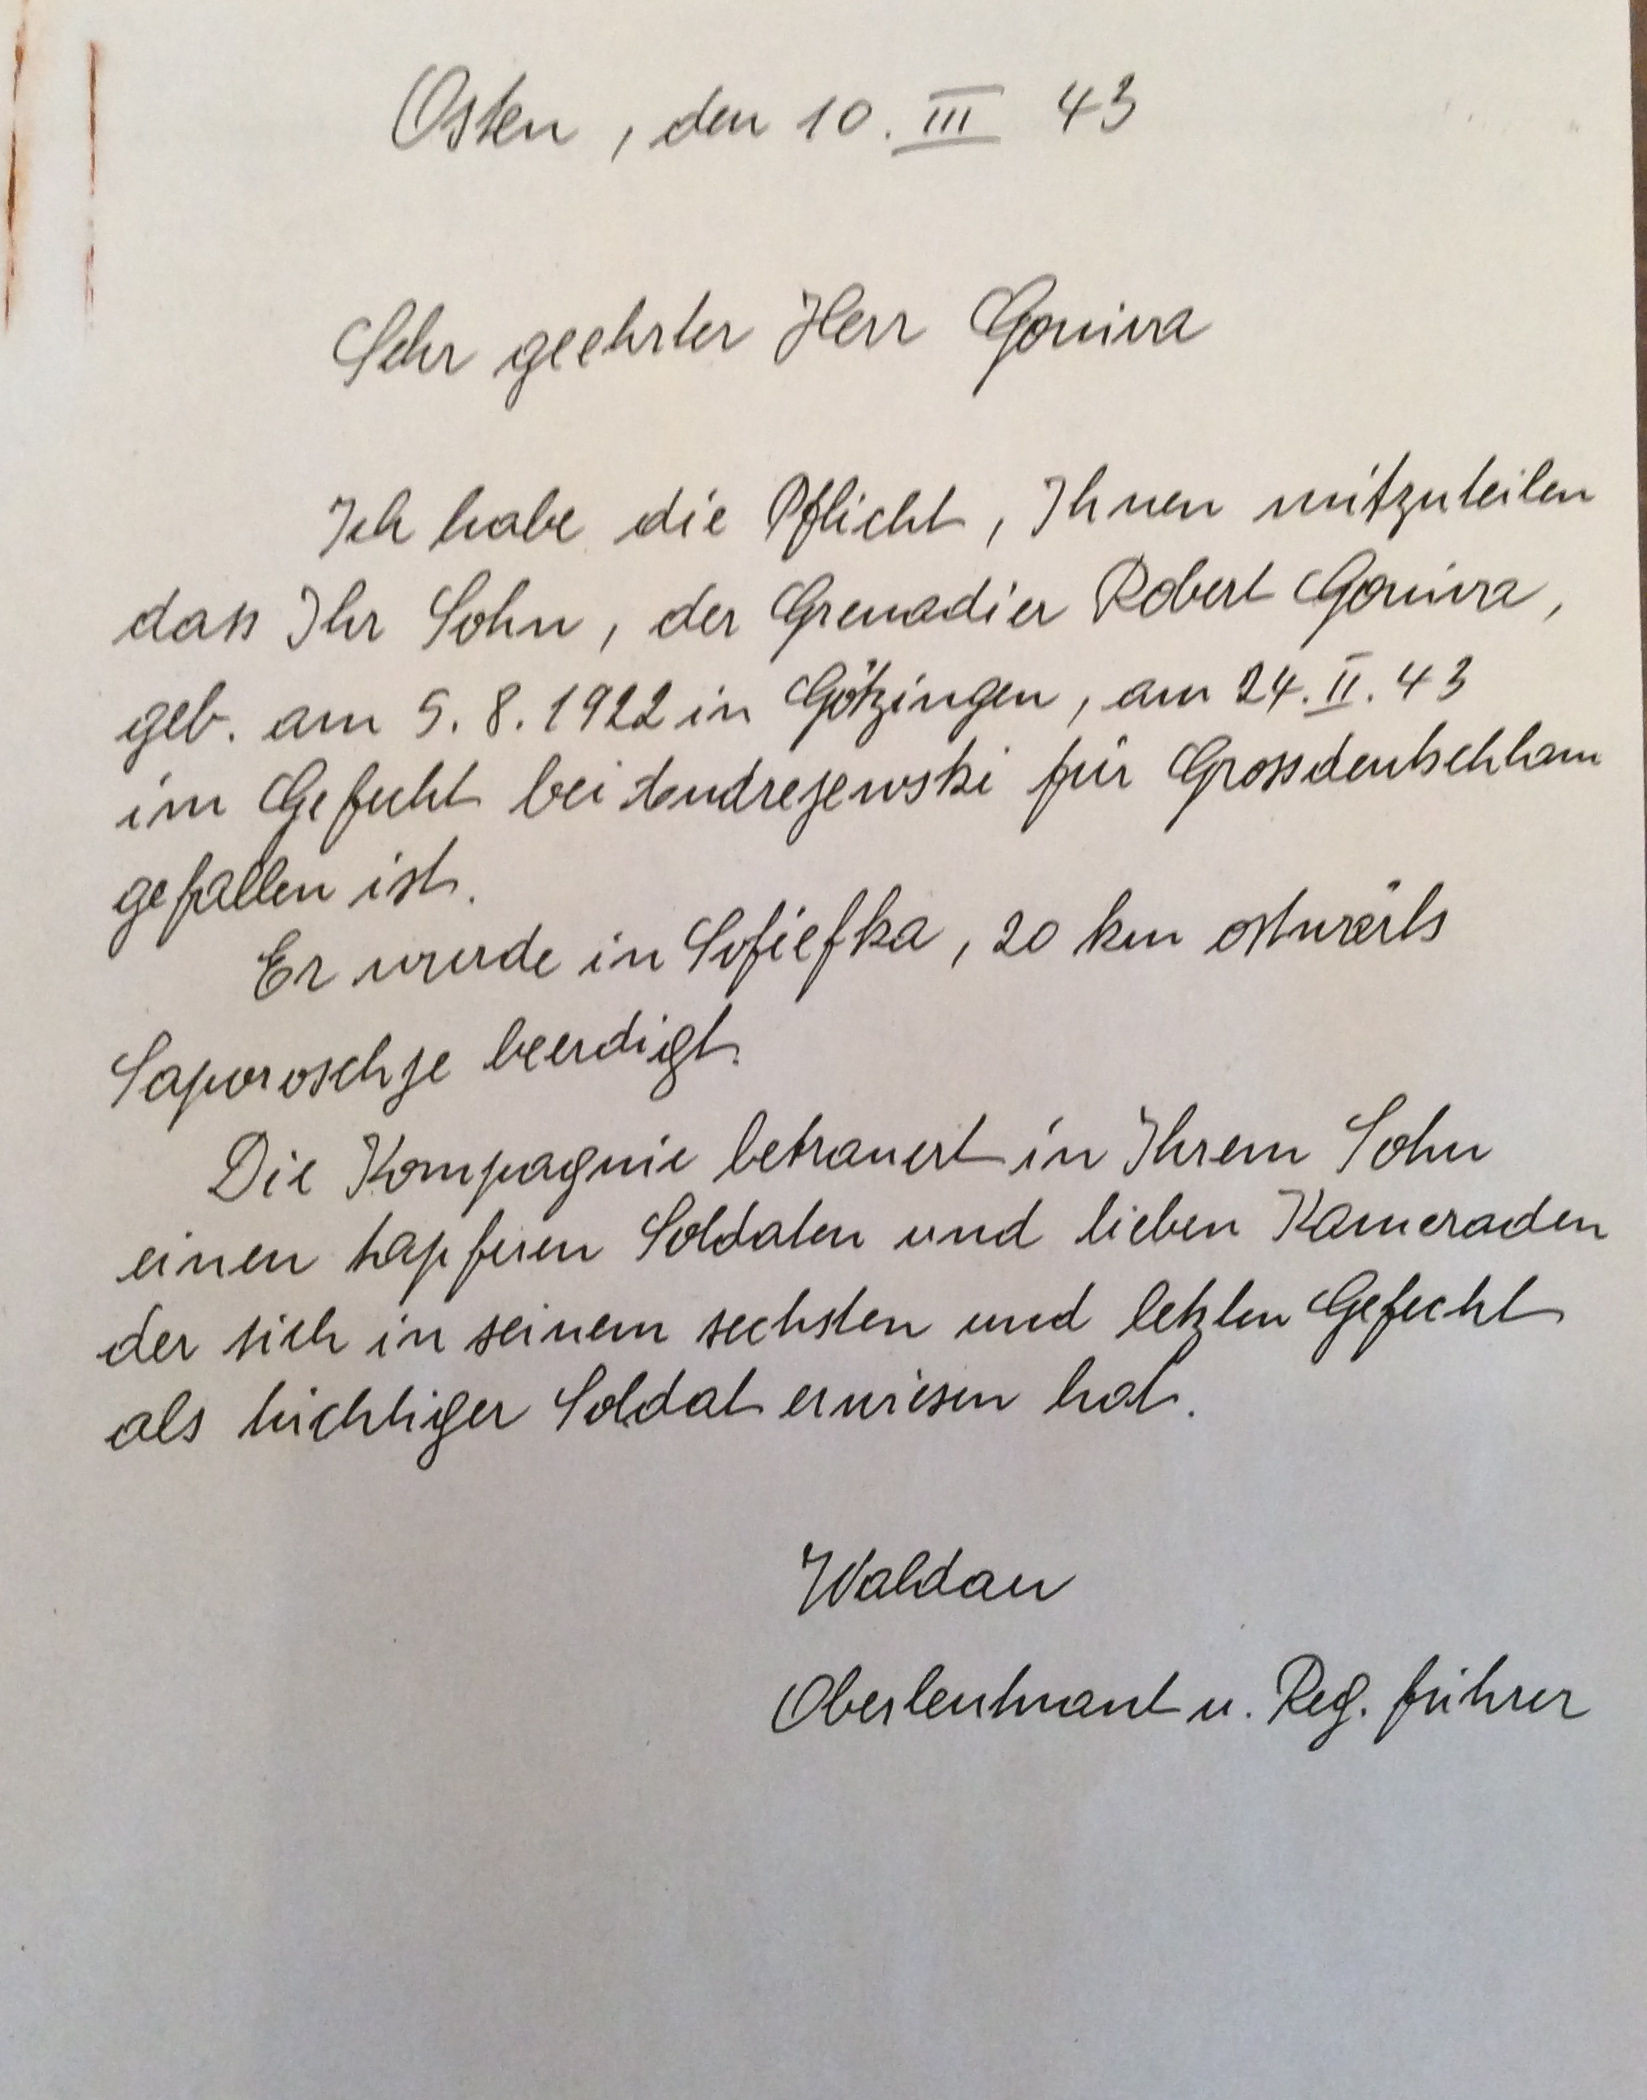 Osten, den 10. III 43
Sehr geehrter Herr Goniva
Ich habe die Pflicht, Ihnen mitzuteilen
dass Ihr Sohn, der Grenadier Robert Goniva,
geb. am 5. 8. 1922 in Götzingen, am 24. II. 43
im Gefecht bei Andrejewski für Grossdeutschlan
gefallen ist.
Er wurde in Sofiefka, 20 km ostwärts
Saporoschje beerdigt.
Die Kompagnie betrauert in Ihrem Sohn
einen tapferen Soldaten und lieben Kameraden
der sich in seinem sechsten und letzten Gefecht
als tüchtiger Soldat erwiesen hat.
Waldau
Oberleutnant u. Reg. führer